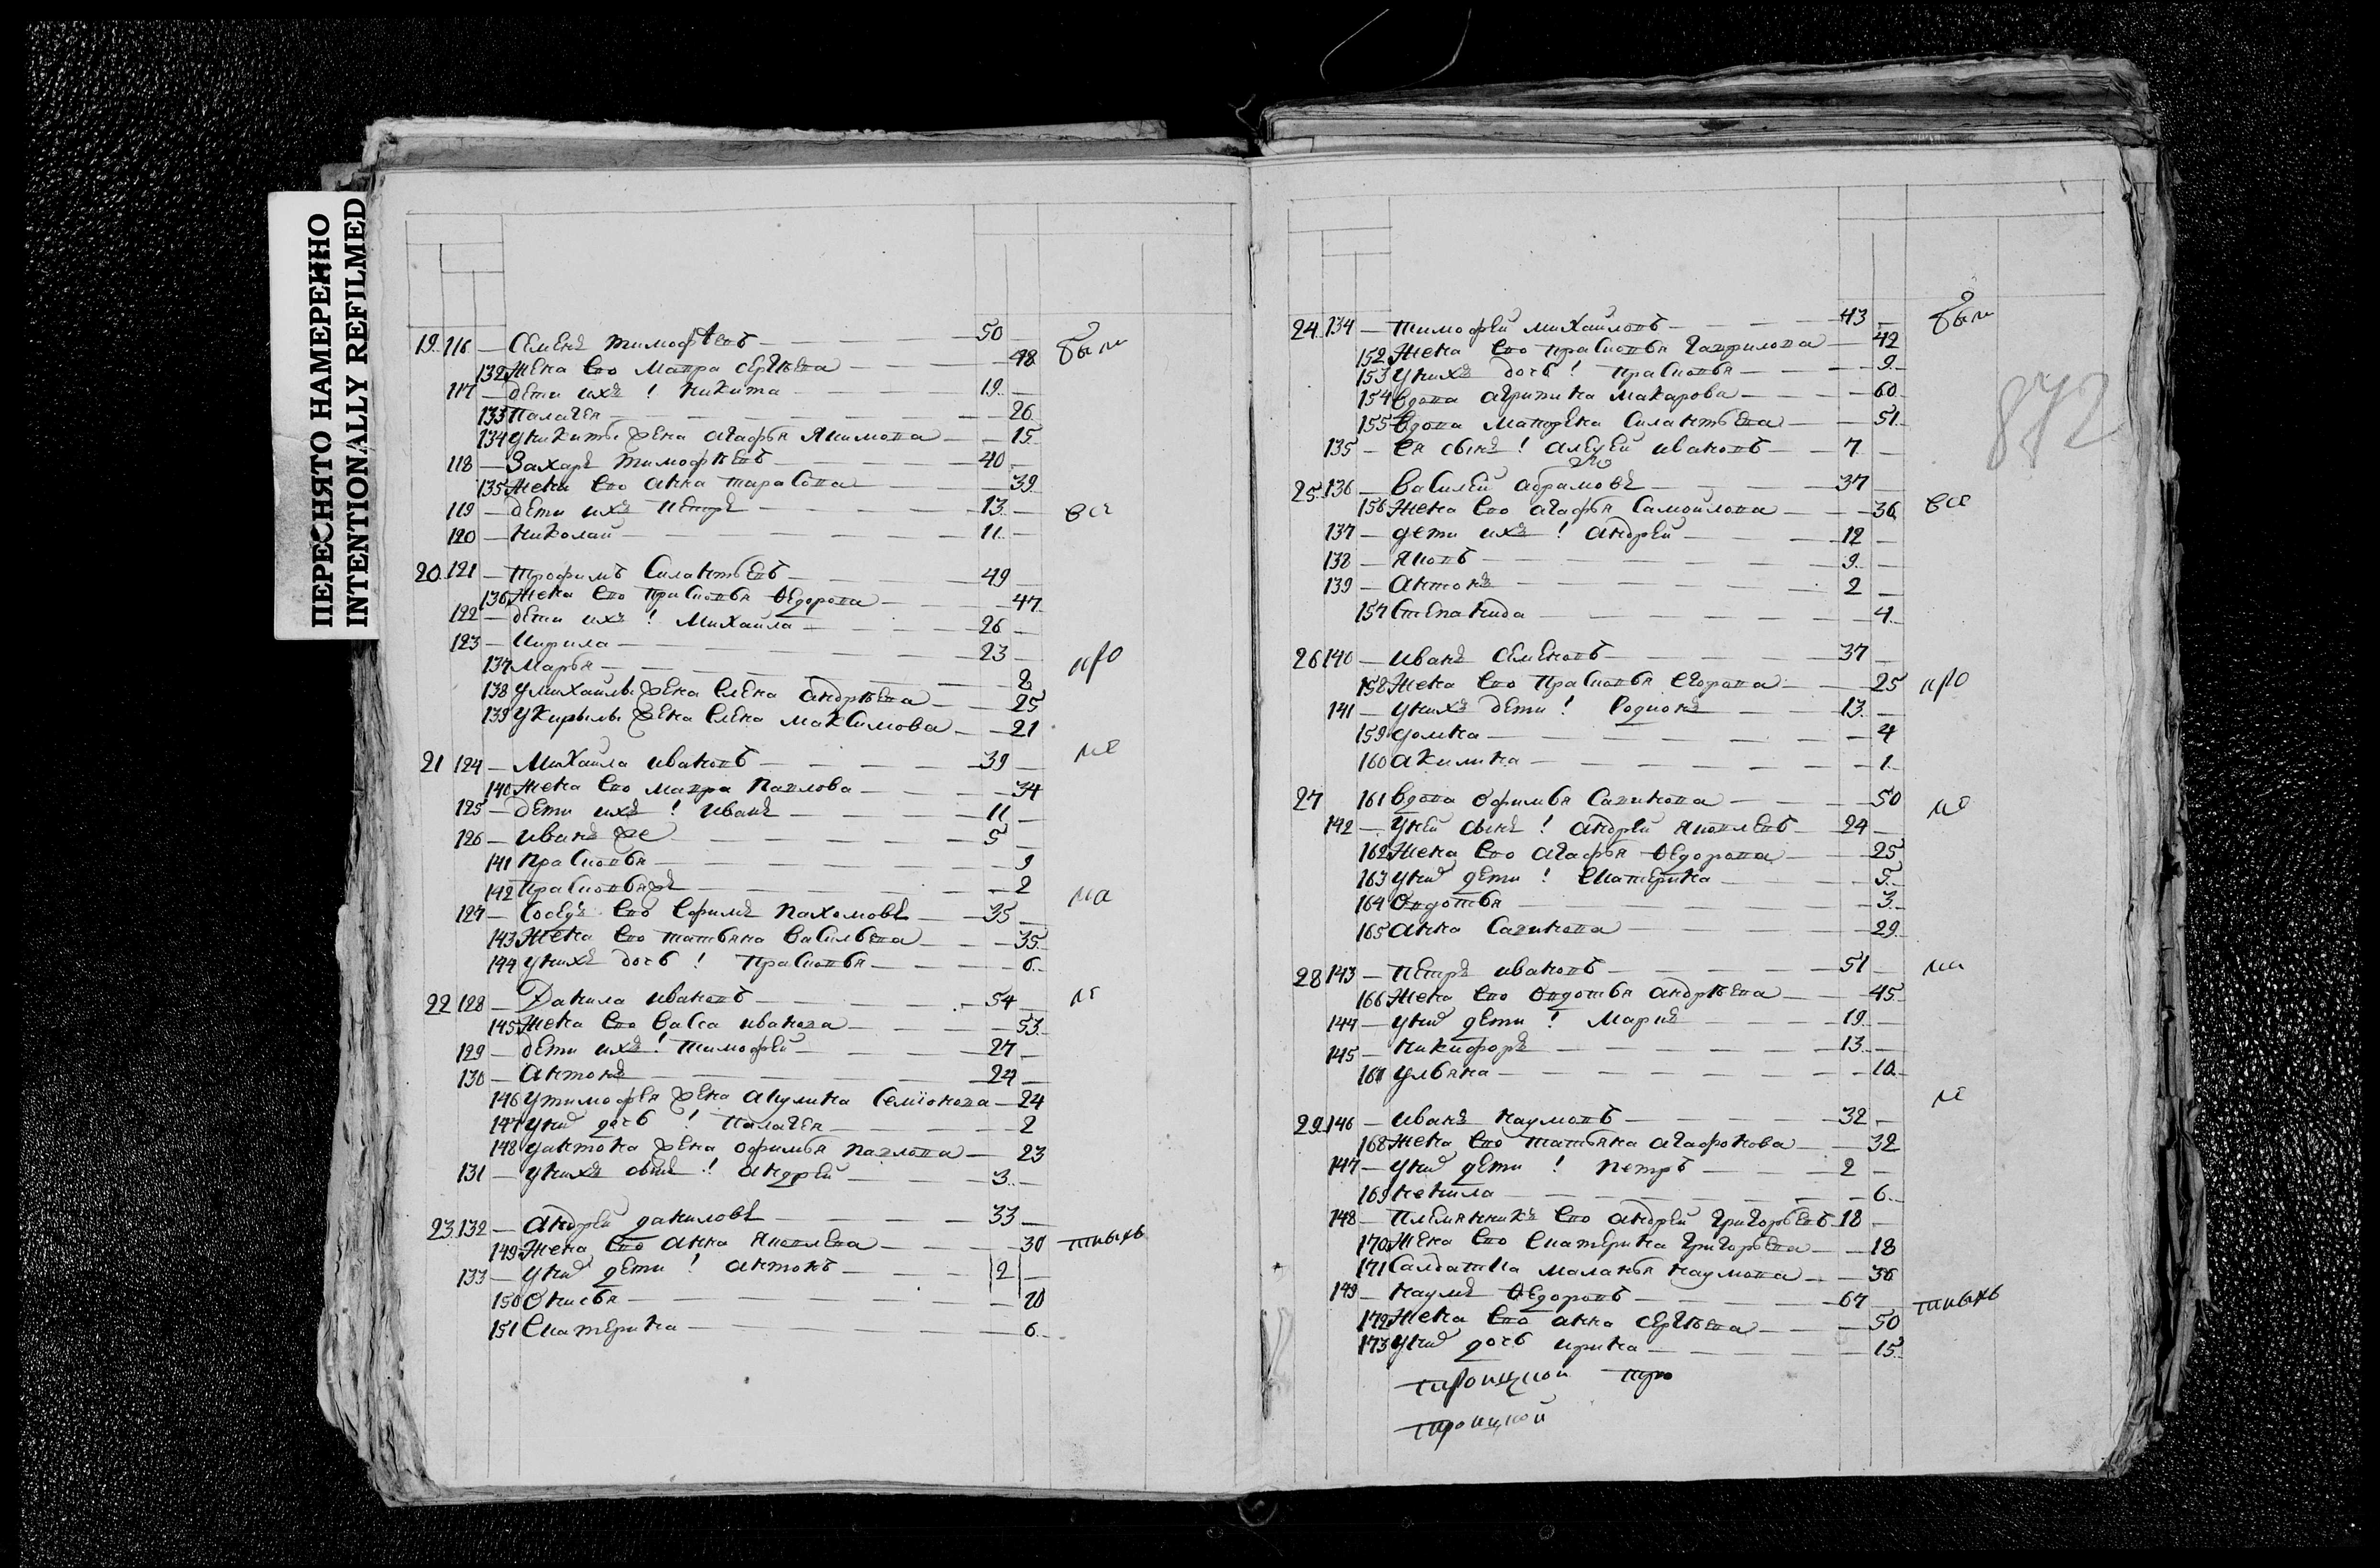 ПЕРЕСНЯТО НАМЕРЕННО
INTENTIONALLY REFILMED
19 116 — Семенъ тимофѣевъ — 50 — были
132 Жена Ево мавра сергѣева — 48
117 — дети ихъ ! никита — 19 —
133 Палагея — 26
134 у никиты жена агафья якимова — 15
118 — Захаръ тимофѣевъ — 40 —
135 Жена Ево анна тарасова — 39
119 — дети ихъ петръ — 13 — все
120 — николай — 11 —
20 121 — трофимъ Силантьевъ — 49 —
136 Жена Ево прасковья Ѳедорова — 47
122 — дети ихъ ! михайла — 26 —
123 — кирила — 23 —
137 марья — 8 — про
138 у михайлы жена Елена андрѣева — 25
139 у кирылы жена Елена максимова — 21
21 124 — михайла ивановъ — 39 — ме
140 Жена Ево мавра павлова — 34
125 — дети ихъ ! иванъ — 11 —
126 — иванъ же — 5 —
141 прасковья — 9
142 прасковьяжъ — 2
127 — Соседъ Ево Ефимъ пахомовъ — 35 — на
143 Жена Ево татьяна Васильева — 35
144 у нихъ дочь ! прасковья — 6
22 128 — Данила ивановъ — 54 — не
145 Жена Ево Васса иванова — 53
129 — дети ихъ ! тимофей — 27 —
130 — антонъ — 24 —
146 у тимофея жена акулина Семионова — 24
147 у нихъ дочь ! палагея — 2
148 у антона жена офимья павлова — 23
131 — у нихъ сынъ ! андрей — 3 —
23 132 — андрей даниловъ — 33 —
149 Жена Ево анна яковлева — 30
133 — у нихъ дети ! антонъ — 2 —
150 Оксинья — 10
151 Екатерина — 6
24 134 — тимофей михайловъ — 43 — были
152 Жена Ево прасковья гаврилова — 42
153 у нихъ дочь ! прасковья — 9
154 вдова агрипина макарова — 60
155 вдова матрена Силантьева — 51
135 — Ея сынъ ! алексей ивановъ — 7 —
872
25 136 — василей абрамовъ — 37 —
156 Жена Ево агафья Самойлова — 36 все
137 — дети ихъ ! андрей — 12 —
138 — яковъ — 9 —
139 — антонъ — 2 —
157 Степанида — 4
26 140 — иванъ Семеновъ — 37 —
158 Жена Ево прасковья Егорова — 25 про
141 — у нихъ дети ! Родионъ — 13 —
159 домна — 4
160 акилина — 1
27 161 вдова офимья Савинова — 50 ме
142 — у ней сынъ ! андрей яковлевъ — 24 —
162 Жена Ево агафья Ѳедорова — 25
163 у нихъ дети ! Екатерина — 5
164 Овдотья — 3
165 анна Савинова — 29
28 143 — петръ ивановъ — 51 — на
166 Жена Ево Овдотья андрѣева — 45
144 — у нихъ дети ! маркъ — 19 —
145 — никифоръ — 13 —
167 ульяна — 10
не
29 146 — иванъ наумовъ — 32 —
168 Жена Ево татьяна агафонова — 32
147 — у нихъ дети ! петръ — 2 —
169 ненила — 6
148 — племянникъ Ево андрей григорьевъ 18 —
170 Жена Ево Екатерина григорьева — 18
171 Салдатка маланья наумова — 36
149 — наумъ Ѳедоровъ — 67 —
172 Жена Ево анна сергѣева — 50
173 у нихъ дочь ирина — 15
троицкой тро
троицкой